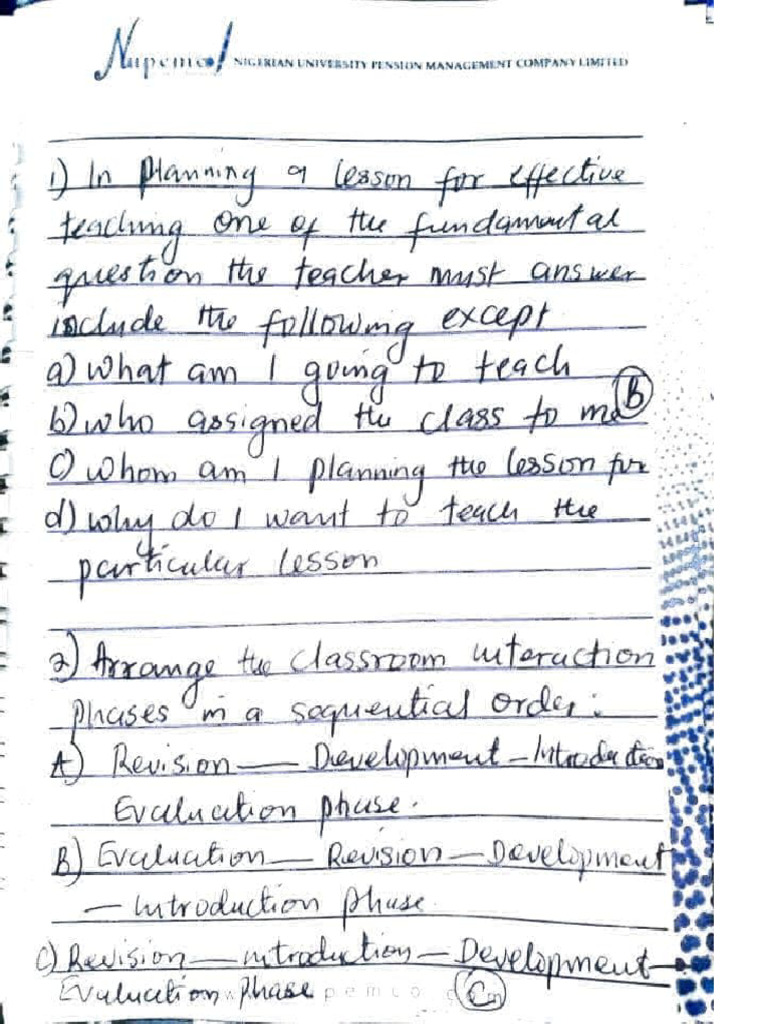 Nupemco NIGERIAN UNIVERSITY PENSION MANAGEMENT COMPANY LIMITED
1) In planning a lesson for effective
teaching one of the fundamental
question the teacher must answer
include the following except
a) what am I going to teach
b) who assigned the class to me (B)
c) whom am I planning the lesson for
d) why do I want to teach the
particular lesson
2) Arrange the classroom interaction
phases in a sequential order:
A) Revision — Development - Introduction
Evaluation phase.
B) Evaluation — Revision — Development
— introduction phase.
C) Revision — introduction — Development —
Evaluation phase (C)